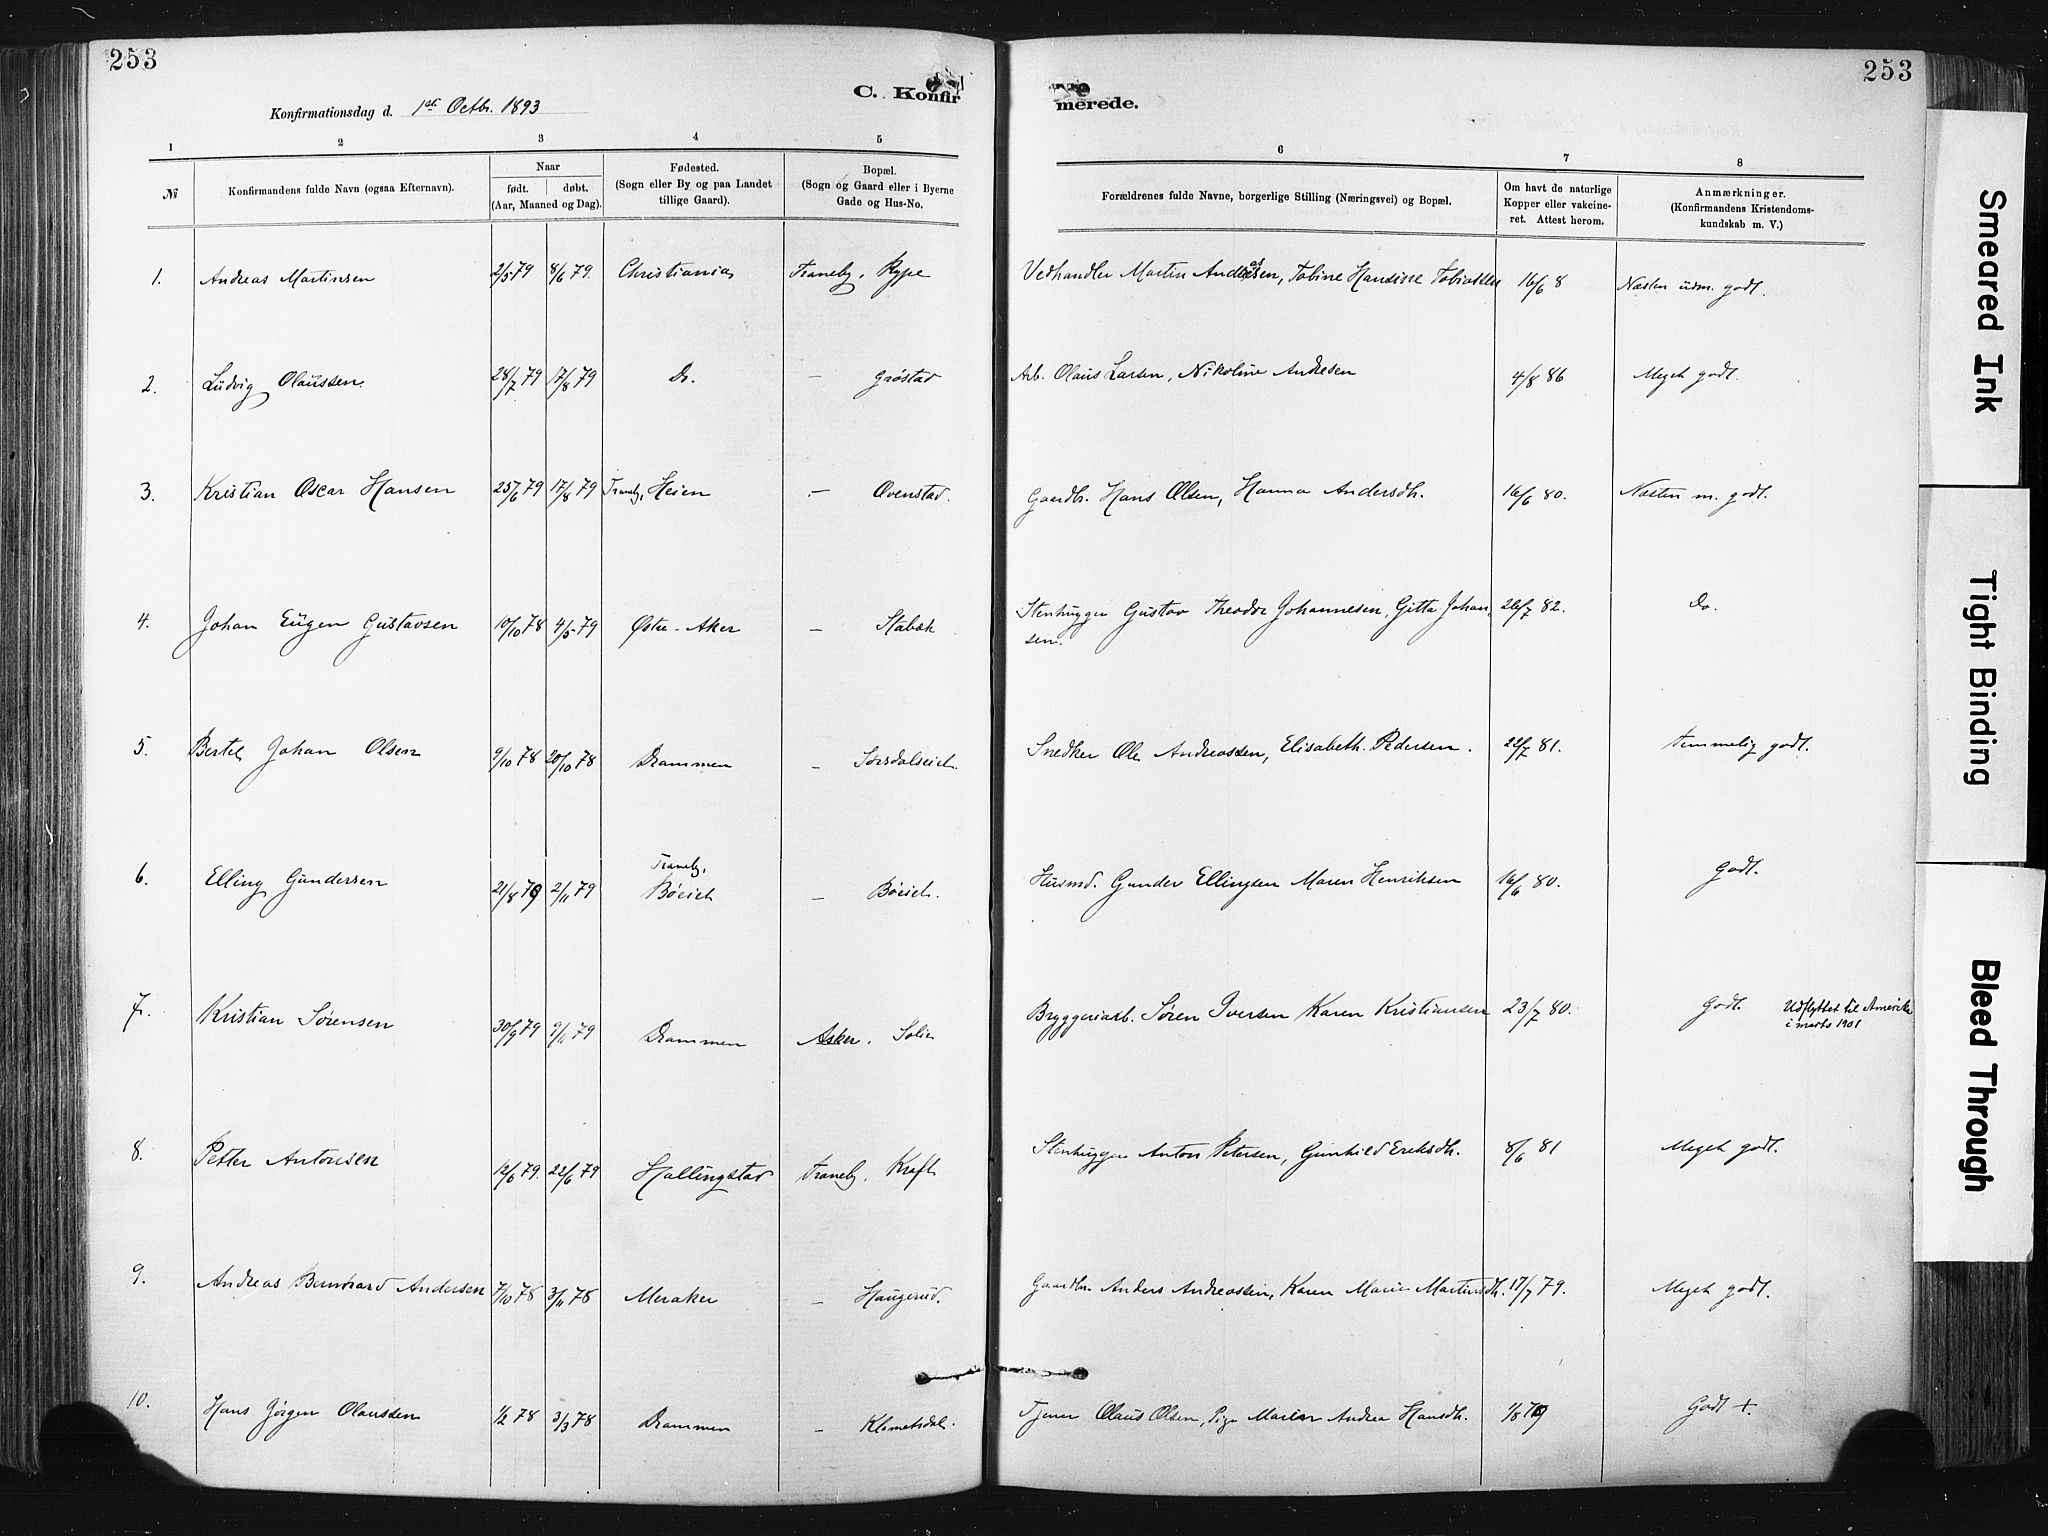 253
253
C. Konfirmerede.
Konfirmationsdag d. 1ste Octbr. 1893
1 2 3 4 5 6 7 8
№ Konfirmandens fulde Navn (ogsaa Efternavn).
Naar
født. døbt.
(Aar, Maaned og Dag).
Fødested.
(Sogn eller By og paa Landet
tillige Gaard).
Bopæl.
(Sogn og Gaard eller i Byerne
Gade og Hus-No.
Forældrenes fulde Navne, borgerlige Stilling (Næringsvei) og Bopæl.
Om havt de naturlige
Kopper eller vakcine-
ret. Attest herom.
Anmærkninger.
(Konfirmandens Kristendoms-
kundskab m. V.)
1. Andreas Martinsen 2/5 79 8/6 79. Christiania Traneby. Rype Vedhandler Martin Andresen, Tobine Hansine Tobiassen 16/6 8 Næsten udm. godt.
2. Ludvig Olaussen 28/7 79 17/8 79 Do. — Grøstad Arb. Olaus Larsen, Nikoline Andresen 4/8 86 Meget godt.
3. Kristian Oscar Hansen 25/6 79 17/8 79 Traneby, Heien — Ovenstad. Gaardbr. Hans Olsen, Hanna Andersdtr. 16/6 80. Næsten m. godt.
4. Johan Eugen Gustavsen 10/10 78 4/5 79 Østre-Aker — Stabæk Stenhugger Gustav Theodor Johannesen, Gitta Johan-
sen. 26/7 82. Do.
5. Bertel Johan Olsen 9/10 78 20/10 78 Drammen — Sørsdalseich. Snedker Ole Andreassen, Elisabeth Pedersen. 22/7 81. Temmelig godt.
6. Elling Gundersen 21/8 79 2/11 79 Traneby, Bøeich — Bøeich. Husmd. Gunder Ellingsen Maren Henriksen 16/6 80. Godt.
7. Kristian Sørensen 30/9 79 9/11 79 Drammen Asker. Solie Bryggeriarb. Søren Iversen Karen Kristiansen 23/7 80. Godt. Udflyttet til Amerika
i marts 1901
8. Petter Antonsen 12/6 79. 22/6 79 Hallingstad Traneby. Kraft Stenhugger Anton Petersen, Gunhild Eriksdtr. 8/6 81 Meget godt.
9. Andreas Bernhard Andersen 7/10 78 3/11 78 Meraker — Haugerud. Gaardbr. Anders Andreassen, Karen Marie Martinsdtr. 17/7 79. Meget godt.
10. Hans Jørgen Olaussen 1/2 78 3/3 78 Drammen — Klemetsdal. Tjener Olaus Olsen, Pige Maren Andrea Hansdtr. 1/8 79 Godt +.
Smeared Ink
Tight Binding
Bleed Through